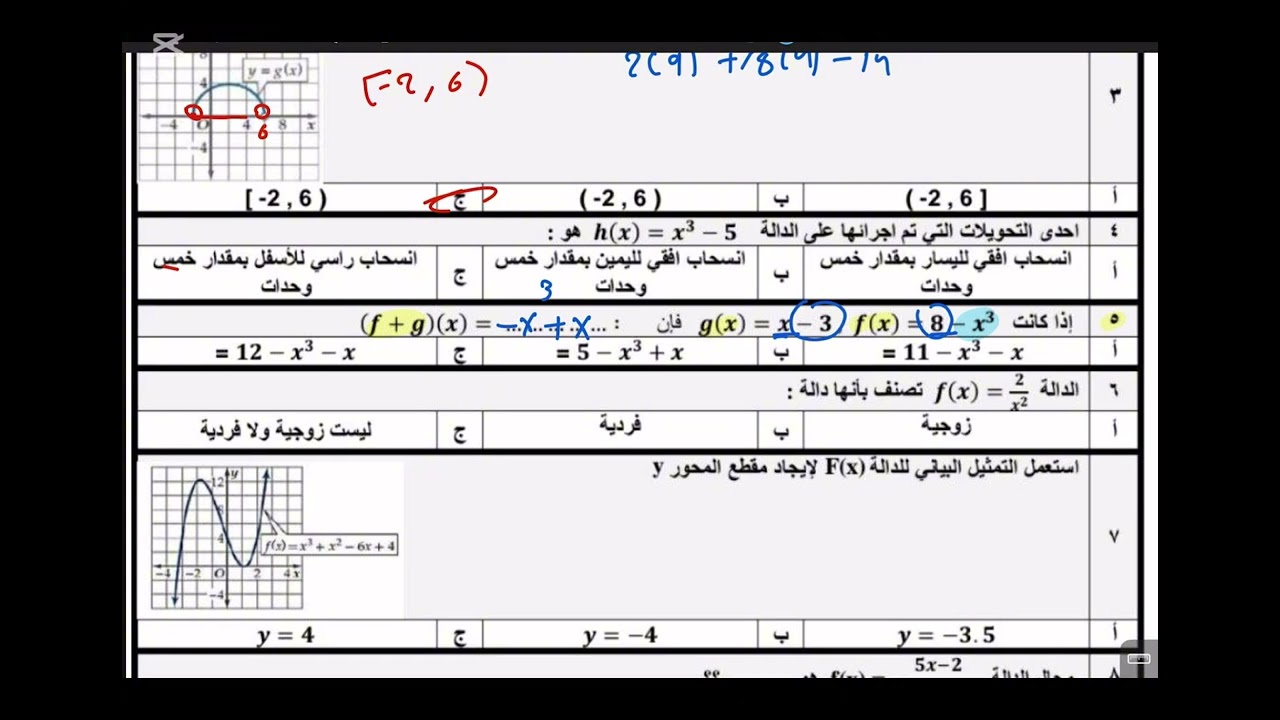 2(9) + 18(9) - 14
[-2 , 6)
٣
y = g(x)
8
4
-4 O 4 8 x
-4
6
أ ( -2 , 6 ] ب ( -2 , 6 ) ج [ -2 , 6 )
٤ احدى التحويلات التي تم اجرائها على الدالة h(x) = x³ − 5 هو :
أ انسحاب افقي لليسار بمقدار خمس وحدات ب انسحاب افقي لليمين بمقدار خمس وحدات ج انسحاب راسي للأسفل بمقدار خمس وحدات
٥ إذا كانت f(x) = 8 − x³ g(x) = x − 3 فإن : (f + g)(x) = ............
-x³ + x
أ = 11 − x³ − x ب = 5 − x³ + x ج = 12 − x³ − x
٦ الدالة f(x) = 2/x² تصنف بأنها دالة :
أ زوجية ب فردية ج ليست زوجية ولا فردية
٧ استعمل التمثيل البياني للدالة F(x) لإيجاد مقطع المحور y
y
12
8
4
f(x) = x³ + x² − 6x + 4
-4 -2 O 2 4 x
-4
أ y = −3.5 ب y = −4 ج y = 4
٨ مجال الدالة
5x−2